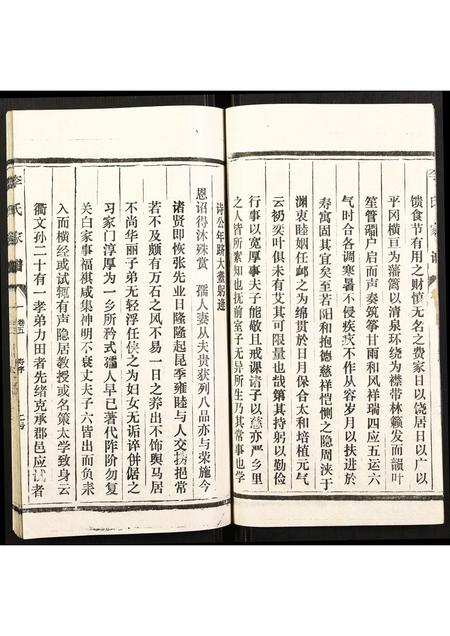 馈食节有用之财慎无名之费家日以饶居日以广以
平冈横亘为藩篱以清泉环绕为襟带林籁发而韻叶
笙管牖户启而声奏筑筝甘雨和风祥瑞四应五运六
气时合各调寒暑不侵疾疢不作从容岁月以扶进於
寿寓固其宜矣至若阳和抱德慈祥恺恻之隐周浃于
渊衷睦姻任邮之为绵贯於日月保合太和培植元气
云礽奕叶俱未有艾其可限量也哉第其持躬以勤俭
行事以宽厚事夫子能敬且戒课诸子以慈亦严乡里
之人皆所素知也抚前室子无异所生乃其常事也学
诗公年跻大耋躬逢
恩诏得沐殊赏 孺人妻从夫贵获列八品亦与荣施今
诸贤即恢张先业日隆隆起昆季雍睦与人交挹常
若不及颇有万石之风不易一日之养出不饰舆马居
不尚华丽子弟无轻浮任侠之为妇女无诟谇併倨之
习家门淳厚为一乡所矜式孺人早已著代阼阶勿复
关白家事福祺咸集神明不衰丈夫子六皆出而负耒
入而横经或试辄有声隐居教授或名策太学致身云
衢文孙二十有一孝弟力田者先绪克承郡邑应试者
李氏家谱
卷五
寿序